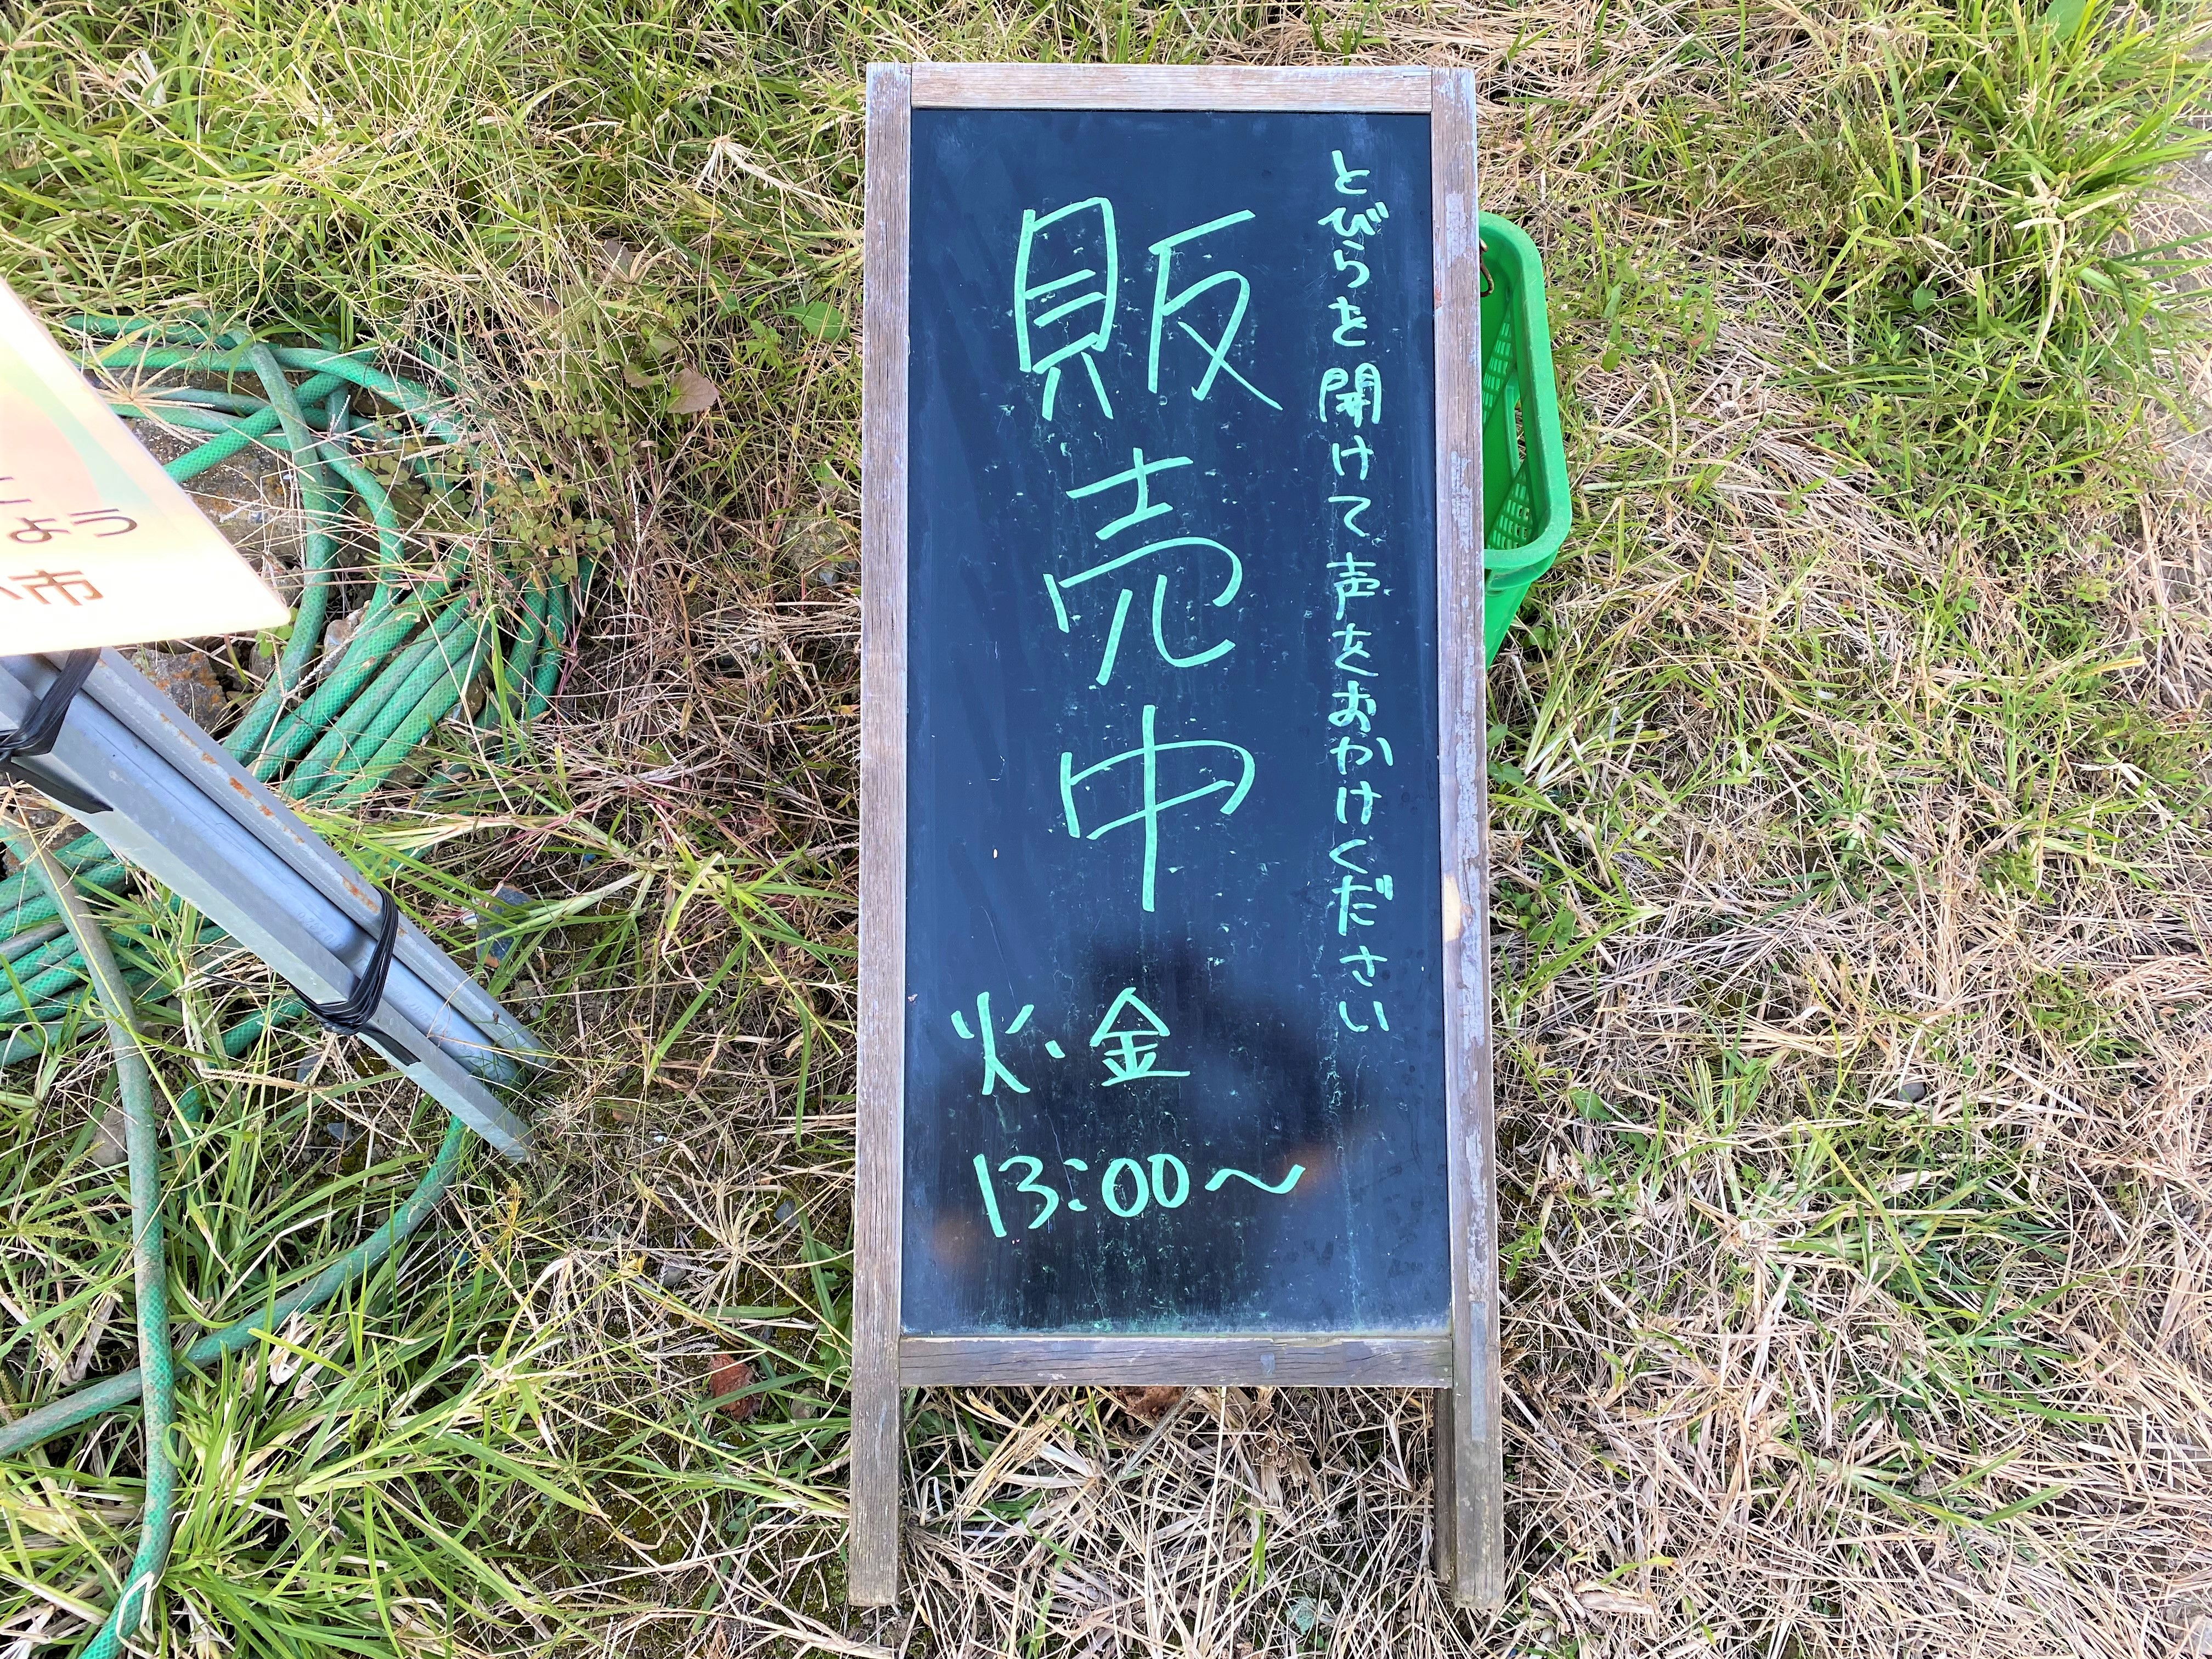 とびらを開けて声をおかけください
販売中
火・金
13:00〜
ょう
市